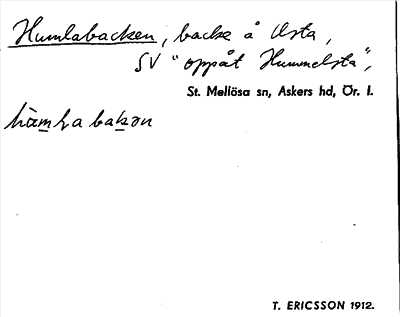 Humlabacken, backe å Ersta,
SV "oppåt Hummelsta",
St. Mellösa sn, Askers hd, Ör. l.
bakən
T. ERICSSON 1912.